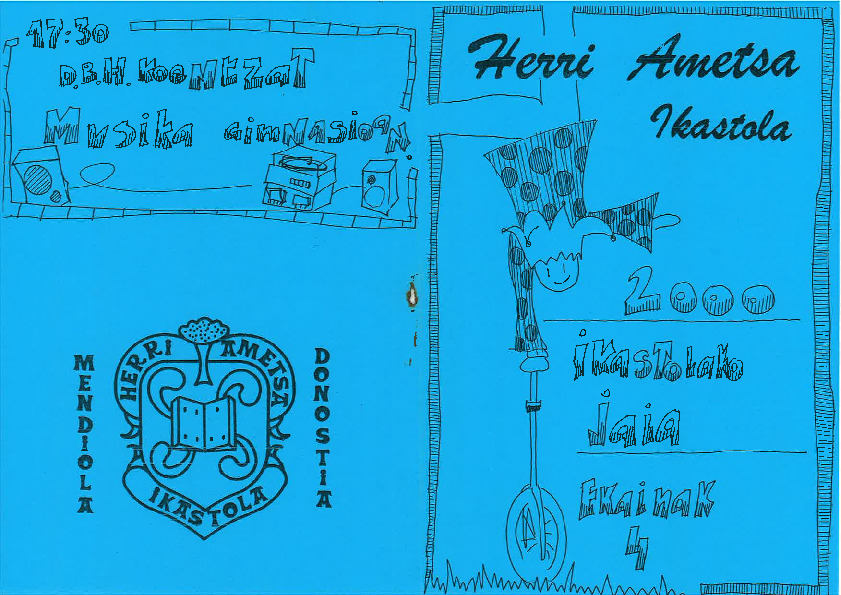 17:30
D.B.H. KoentzaT
Musika GimNasioaN.
MENDIOLA
HERRI AMETSA
IKASTOLA
DONOSTIA
Herri Ametsa
Ikastola
2000
iKasTolako
jaia
EKainaK
4